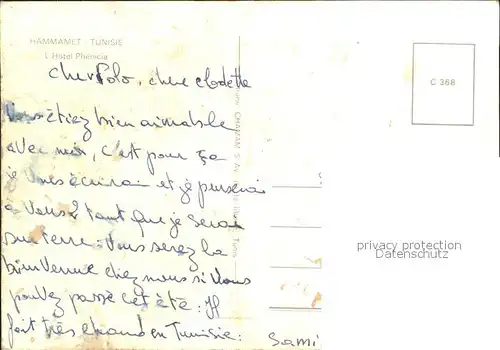 HAMMAMET - TUNISIE
L'Hôtel Phénicia
C 368
cher Polo, chère clodette
Vous étiez bien aimable
avec moi, c'est pour ça
je vous écrirai et je penserai
à vous 2 tant que je serai
sur terre. Vous serez la
bienvenue chez nous si vous
pouvez passé cet été. Il
fait très chaud en Tunisie.
Sami
privacy protection
Datenschutz